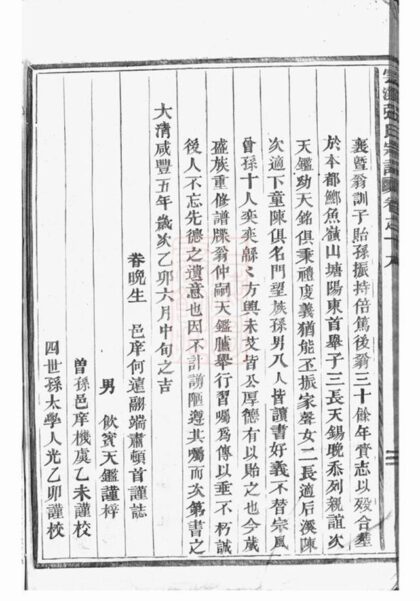 襄暨翁訓子貽孫振持倍篤後翁三十餘年賫志以歿合塟
於本都鄉魚嶺山塘陽東首舉子三長天錫晚忝列親誼次
天鑑幼天銘俱秉禮度義猶能丕振家聲女二長適后溪陳
次適下童陳俱名門望族孫男八人皆讀書好義不替宗風
曾孫十人奕奕緜緜方興未艾皆公厚德有以貽之也今歲
盛族重修譜牒翁仲嗣天鑑臚舉行習囑為傳以垂不朽誠
後人不忘先德之遺意也因不計謭陋遵其囑而次第書之
大清咸豐五年歲次乙卯六月中旬之吉
眷晚生 邑庠何蓮融端肅頓首謹誌
男 飲賓天鑑謹梓
曾孫邑庠機虞乙未謹校
四世孫太學人光乙卯謹校